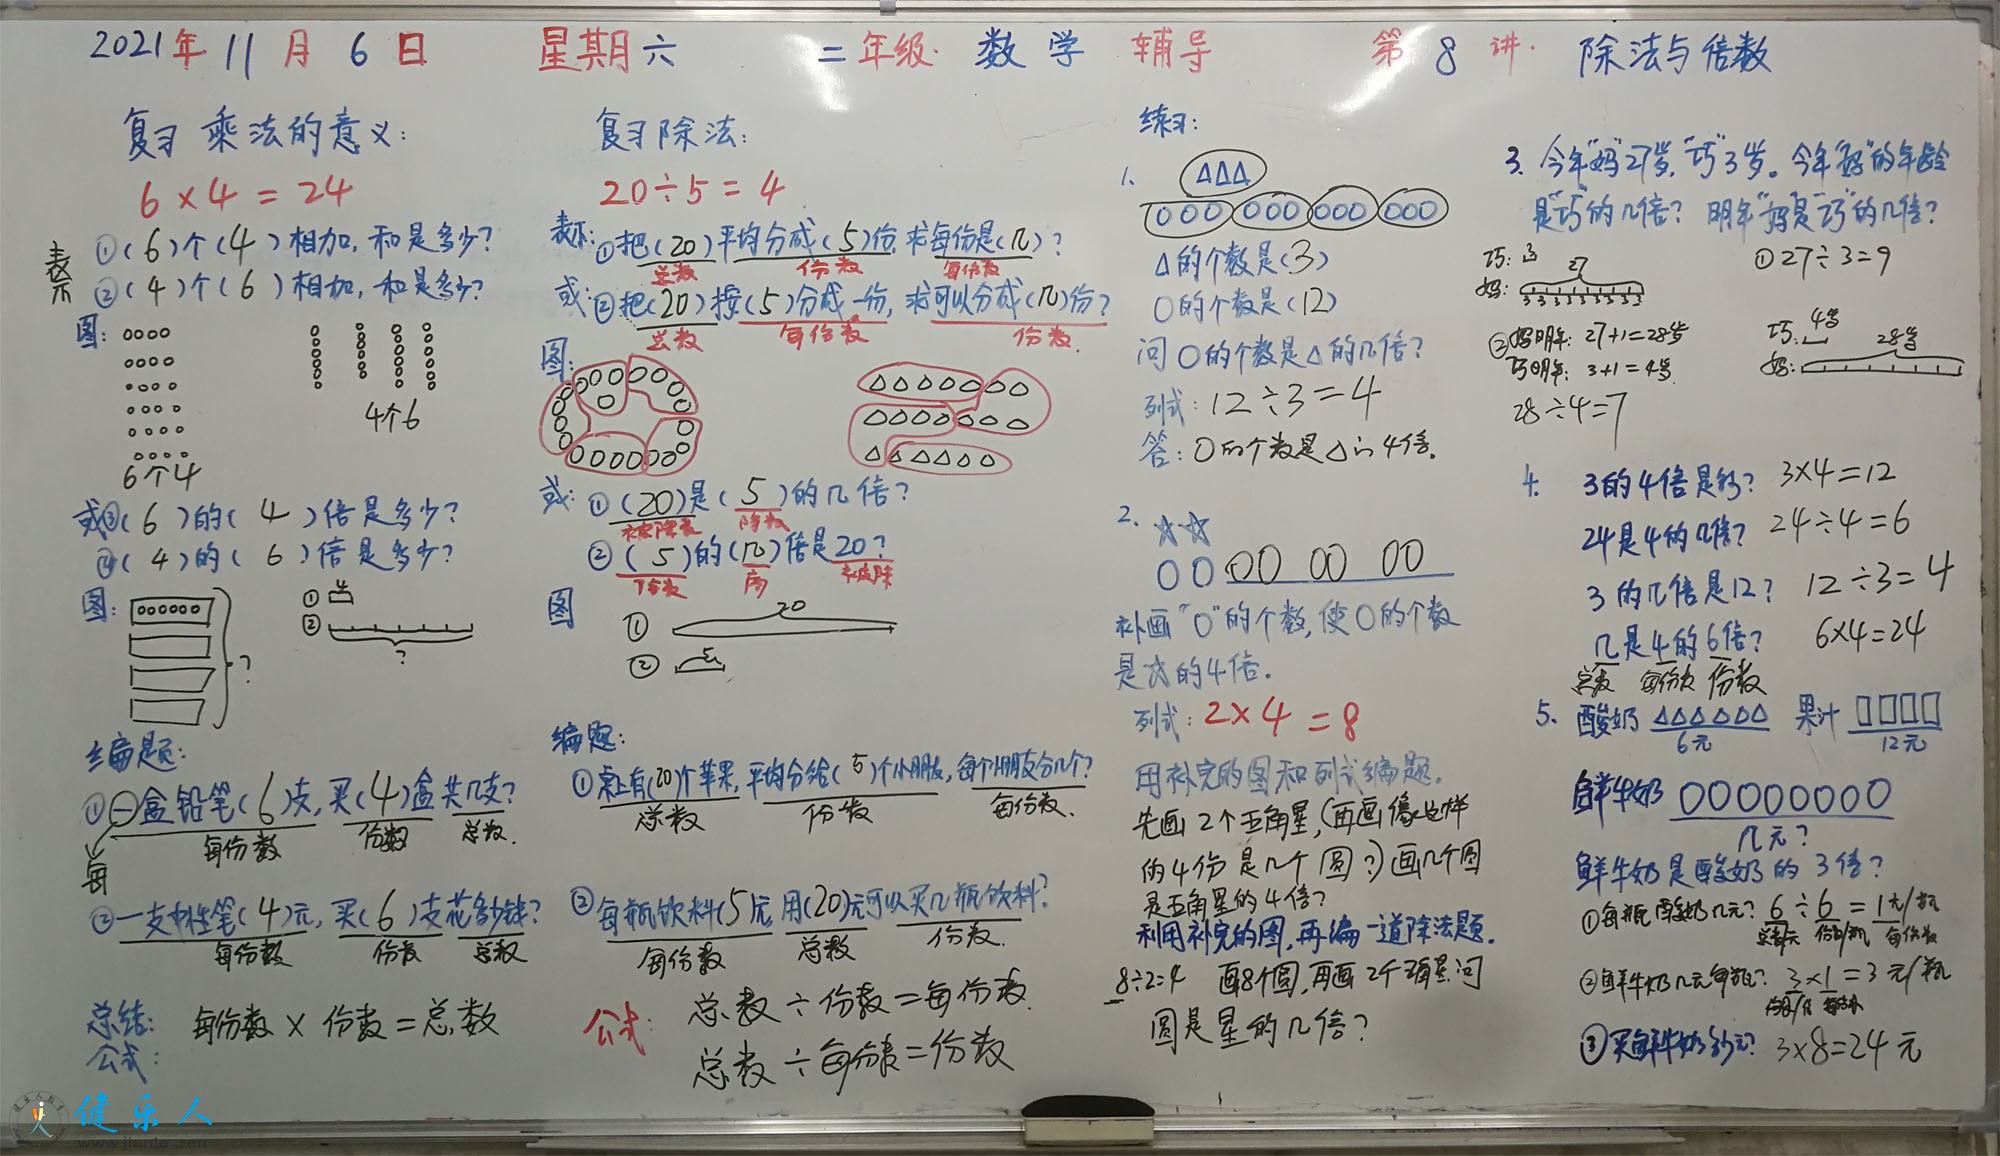 2021年11月6日 星期六 二年级 数学 辅导 第8讲 除法与倍数
复习 乘法的意义：
6×4=24
表示
①(6)个(4)相加，和是多少？
②(4)个(6)相加，和是多少？
图：
6个4
4个6
或③(6)的(4)倍是多少？
④(4)的(6)倍是多少？
图：
?
①
②
?
编题：
①一盒铅笔(6)支，买(4)盒共几支？
每份数 份数 总数
每
②一支中性笔(4)元，买(6)支花多少钱？
每份数 份数 总数
总结：每份数×份数=总数
公式：
复习除法：
20÷5=4
表示：①把(20)平均分成(5)份，求每份是(几)？
总数 份数 每份数
或：②把(20)按(5)分成一份，求可以分成(几)份？
总数 每份数 份数
图：
或：①(20)是(5)的几倍？
被除数 除数
②(5)的(几)倍是20？
商
图
① 20
② 5
编题：
①桌上有(20)个苹果，平均分给(5)个小朋友，每个小朋友分几个？
总数 份数 每份数
②每瓶饮料(5)元，用(20)元可以买几瓶饮料？
每份数 总数 份数
公式：总数÷份数=每份数
总数÷每份数=份数
练习：
1.
△△△
○○○ ○○○ ○○○ ○○○
△的个数是(3)
○的个数是(12)
问○的个数是△的几倍？
列式：12÷3=4
答：○的个数是△的4倍。
2. ☆☆
○○ ○○ ○○ ○○
补画"○"的个数，使○的个数
是☆的4倍。
列式：2×4=8
用补完的图和列式编题。
先画2个五角星，(再画像这样
的4份是几个圆？)画几个圆
是五角星的4倍？
利用补完的图，再编一道除法题。
8÷2=4 画8个圆，再画2个五角星问
圆是星的几倍？
3. 今年"妈"27岁，"巧"3岁。今年"妈"的年龄
是"巧"的几倍？明年"妈"是"巧"的几倍？
巧：3
27
妈：
3 3 3 3 3 3 3 3 3
①27÷3=9
②妈明年：27+1=28岁
巧明年：3+1=4岁
28÷4=7
巧：4岁
28岁
妈：
4. 3的4倍是多少？ 3×4=12
24是4的几倍？ 24÷4=6
3的几倍是12？ 12÷3=4
几是4的6倍？ 6×4=24
总数 每份数 份数
5. 酸奶 △△△△△△ 果汁 □□□□
6元 12元
鲜牛奶 ○○○○○○○○
几元？
鲜牛奶是酸奶的3倍？
①每瓶酸奶几元？6÷6=1元/瓶
每份数
②鲜牛奶几元每瓶？3×1=3元/瓶
③买鲜牛奶多少元？3×8=24元
健乐人